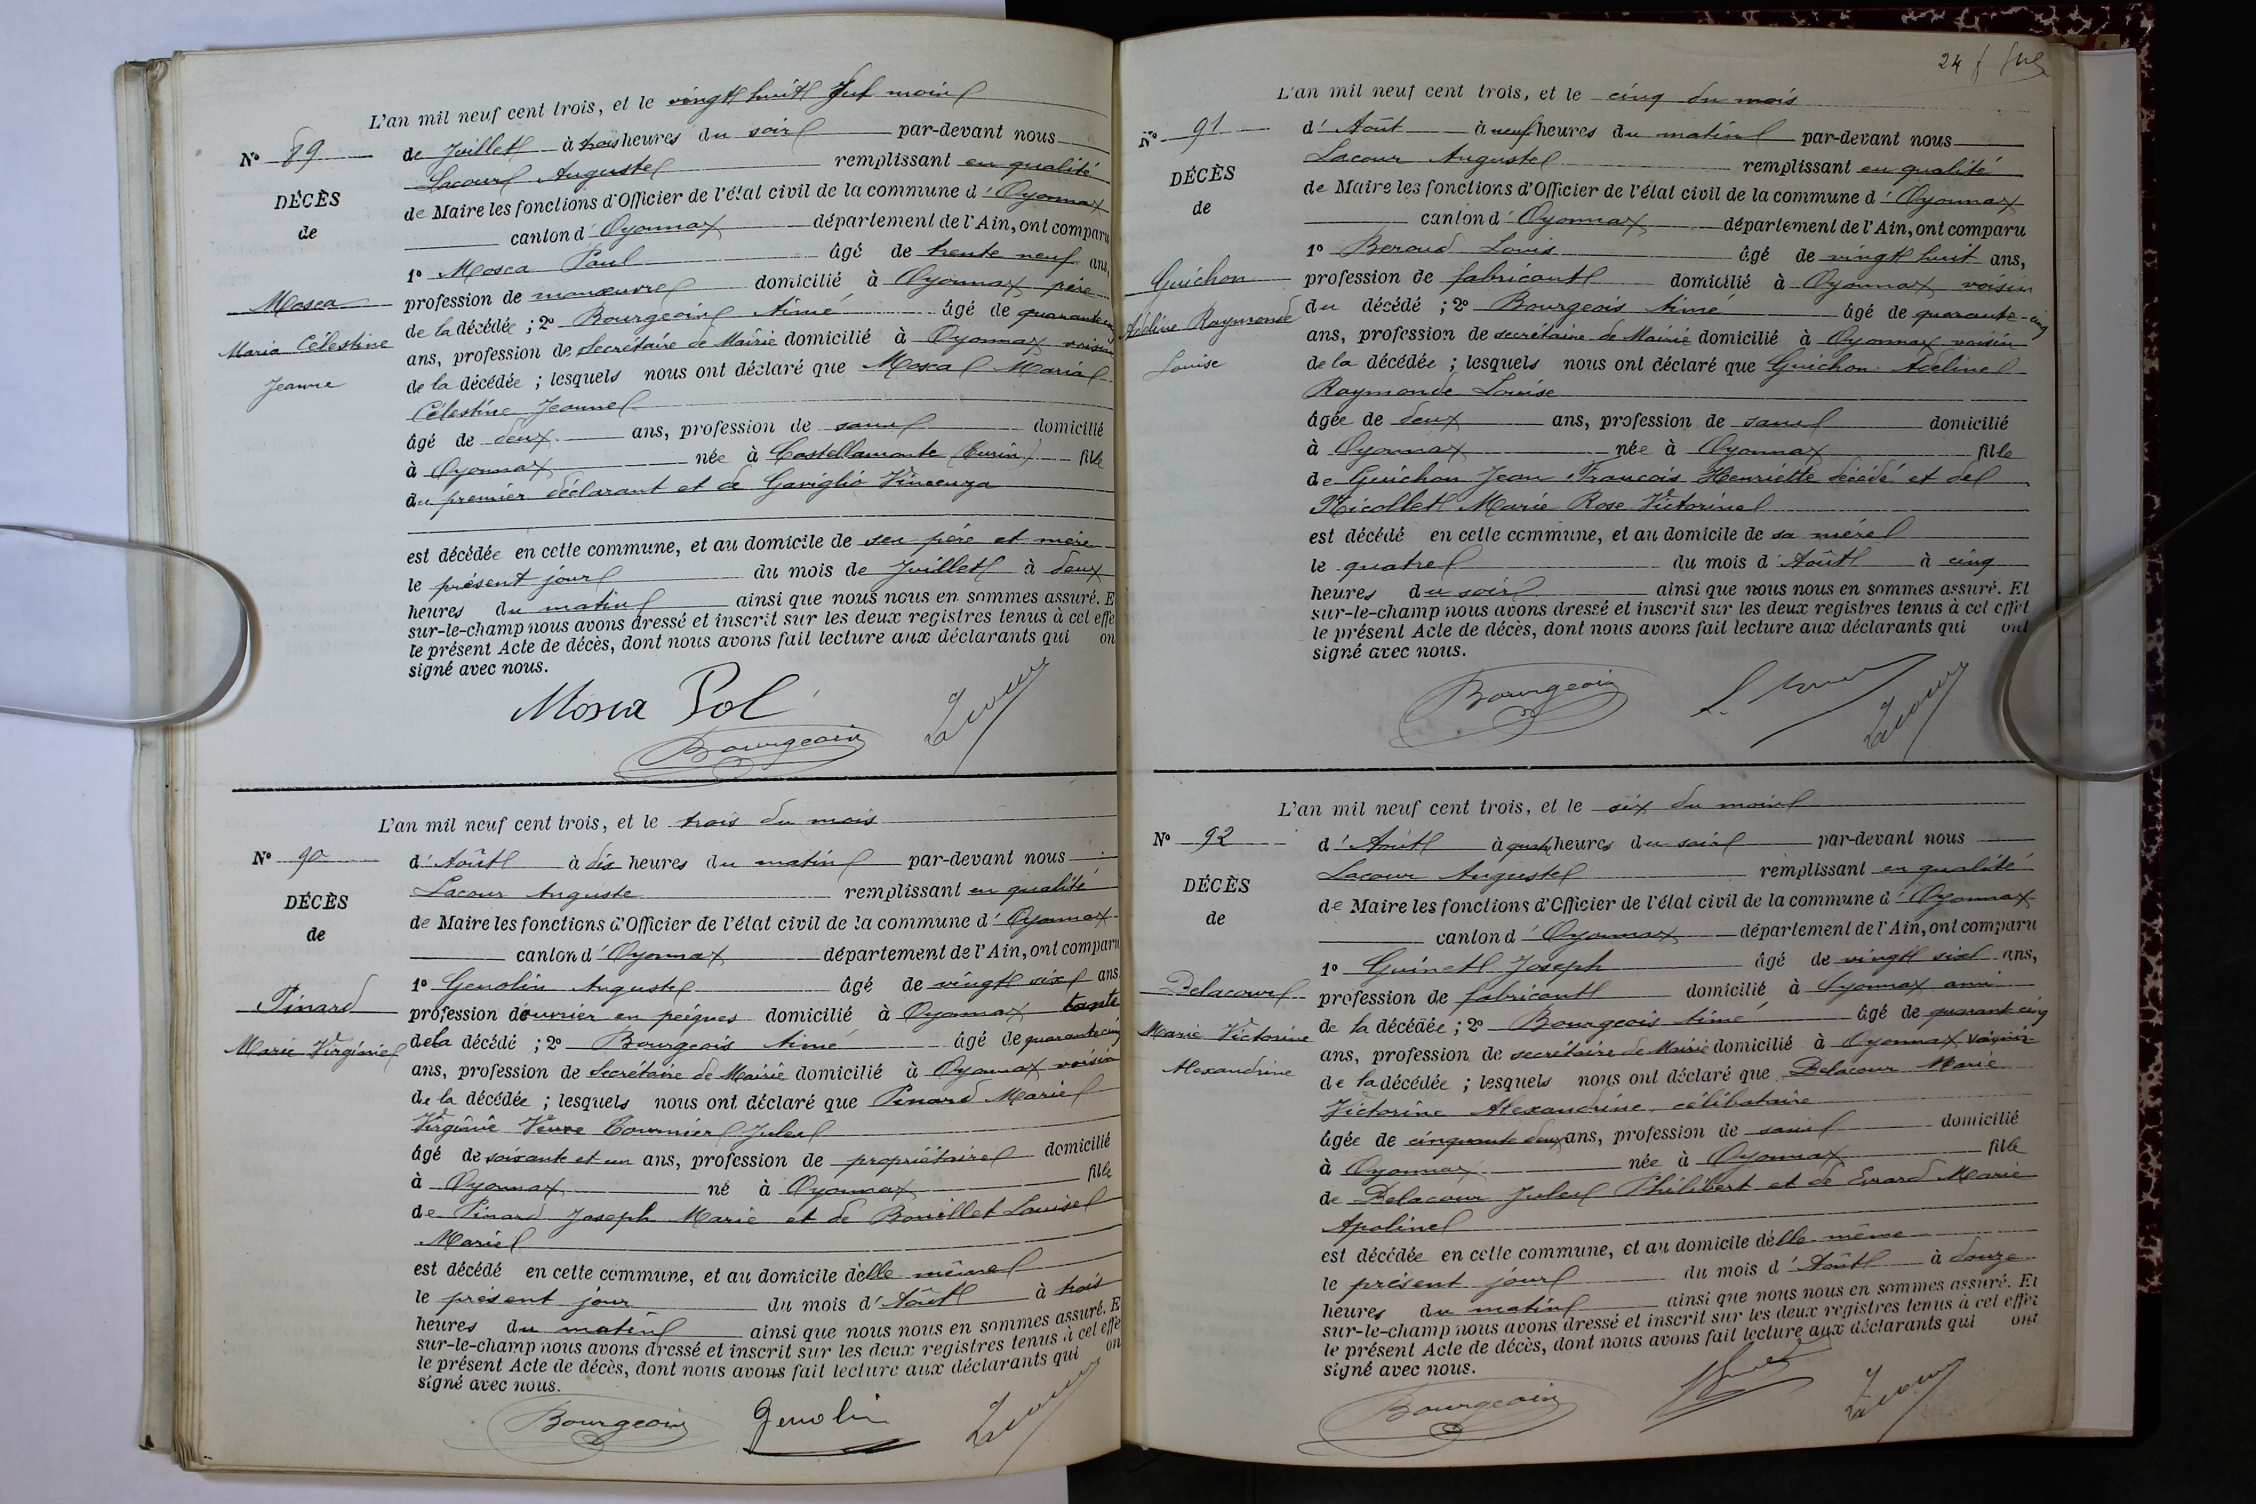 L'an mil neuf cent trois, et le vingt huit du mois
N° 89
de Juillet à trois heures du soir par-devant nous
Lacour Auguste remplissant en qualité
DÉCÈS
de Maire les fonctions d'Officier de l'état civil de la commune d'Oyonnax
de
canton d'Oyonnax département de l'Ain, ont comparu
1° Mosca Paul âgé de trente neuf ans,
Mosca
profession de manœuvre domicilié à Oyonnax père
de la décédée ; 2° Bourgeois Aimé âgé de quarante cinq
Maria Célestine
ans, profession de Secrétaire de Mairie domicilié à Oyonnax voisin
Jeanne
de la décédée ; lesquels nous ont déclaré que Mosca Maria
Célestine Jeanne
âgé de deux ans, profession de sans domicilié
à Oyonnax née à Castellamonte (Turin) fille
du premier déclarant et de Gaviglio Vincenza
est décédée en cette commune, et au domicile de ses père et mère
le présent jour du mois de Juillet à deux
heures du matin ainsi que nous nous en sommes assuré. E
sur-le-champ nous avons dressé et inscrit sur les deux registres tenus à cet effe
le présent Acte de décès, dont nous avons fait lecture aux déclarants qui on
signé avec nous.
Mosca Pol
Bourgeois
Lacour
L'an mil neuf cent trois, et le trois du mois
N° 90
d'Août à dix heures du matin par-devant nous
Lacour Auguste remplissant en qualité
DÉCÈS
de Maire les fonctions d'Officier de l'état civil de la commune d'Oyonnax
de
canton d'Oyonnax département de l'Ain, ont comparu
1° Genolin Auguste âgé de vingt six ans
Pinard
profession d'ouvrier en peignes domicilié à Oyonnax tante
Marie Virginie
de la décédé ; 2° Bourgeois Aimé âgé de quarante cinq
ans, profession de Secrétaire de Mairie domicilié à Oyonnax voisin
de la décédée ; lesquels nous ont déclaré que Pinard Marie
Virginie Veuve Tournier Jules
âgé de soixante et un ans, profession de propriétaire domicilié
à Oyonnax né à Oyonnax fille
de Pinard Joseph Marie et de Bouillet Louise
Marie
est décédé en cette commune, et au domicile d'elle même
le présent jour du mois d'Août à trois
heures du matin ainsi que nous nous en sommes assuré. E
sur-le-champ nous avons dressé et inscrit sur les deux registres tenus à cet effe
le présent Acte de décès, dont nous avons fait lecture aux déclarants qui on
signé avec nous.
Bourgeois
Genolin
Lacour
24
L'an mil neuf cent trois, et le cinq du mois
N° 91
d'Août à neuf heures du matin par-devant nous
Lacour Auguste remplissant en qualité
DÉCÈS
de Maire les fonctions d'Officier de l'état civil de la commune d'Oyonnax
de
canton d'Oyonnax département de l'Ain, ont comparu
1° Beroud Louis âgé de vingt huit ans,
Guichon
profession de fabricant domicilié à Oyonnax voisin
Adeline Raymonde
du décédé ; 2° Bourgeois Aimé âgé de quarante-cinq
ans, profession de secrétaire de Mairie domicilié à Oyonnax voisin
Louise
de la décédée ; lesquels nous ont déclaré que Guichon Adeline
Raymonde Louise
âgée de deux ans, profession de sans domicilié
à Oyonnax née à Oyonnax fille
de Guichon Jean François Henriette décédé et de
Nicollet Marie Rose Victorine
est décédé en cette commune, et au domicile de sa mère
le quatre du mois d'Août à cinq
heures du soir ainsi que nous nous en sommes assuré. Et
sur-le-champ nous avons dressé et inscrit sur les deux registres tenus à cet effet
le présent Acte de décès, dont nous avons fait lecture aux déclarants qui ont
signé avec nous.
Bourgeois
Lacour
L'an mil neuf cent trois, et le six du mois
N° 92
d'Août à quatre heures du soir par-devant nous
Lacour Auguste remplissant en qualité
DÉCÈS
de Maire les fonctions d'Officier de l'état civil de la commune d'Oyonnax
de
canton d'Oyonnax département de l'Ain, ont comparu
1° Guinet Joseph âgé de vingt six ans,
Delacour
profession de fabricant domicilié à Oyonnax ami
Marie Victorine
de la décédée ; 2° Bourgeois Aimé âgé de quarant cinq
ans, profession de secrétaire de Mairie domicilié à Oyonnax voisin
Alexandrine
de la décédée ; lesquels nous ont déclaré que Delacour Marie
Victorine Alexandrine, célibataire
âgée de cinquante deux ans, profession de sans domicilié
à Oyonnax née à Oyonnax fille
de Delacour Jules Philibert et de Evrard Marie
Apoline
est décédée en cette commune, et au domicile d'elle même
le présent jour du mois d'Août à douze
heures du matin ainsi que nous nous en sommes assuré. Et
sur-le-champ nous avons dressé et inscrit sur les deux registres tenus à cet effet
le présent Acte de décès, dont nous avons fait lecture aux déclarants qui ont
signé avec nous.
Bourgeois
Lacour